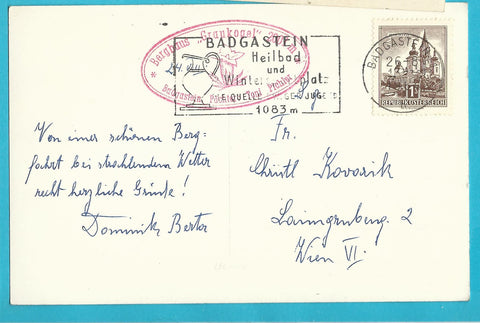 Berghaus "Graukogel"
Badgastein,
BADGASTEIN
Heilbad
und
1083 m
BADGASTEIN
REPUBLIK ÖSTERREICH
Von einer schönen Berg-
fahrt bei strahlendem Wetter
recht herzliche Grüße!
Dominik Bertor
Fr.
Christl Kovarik
Laimgrubeng. 2
Wien VI.